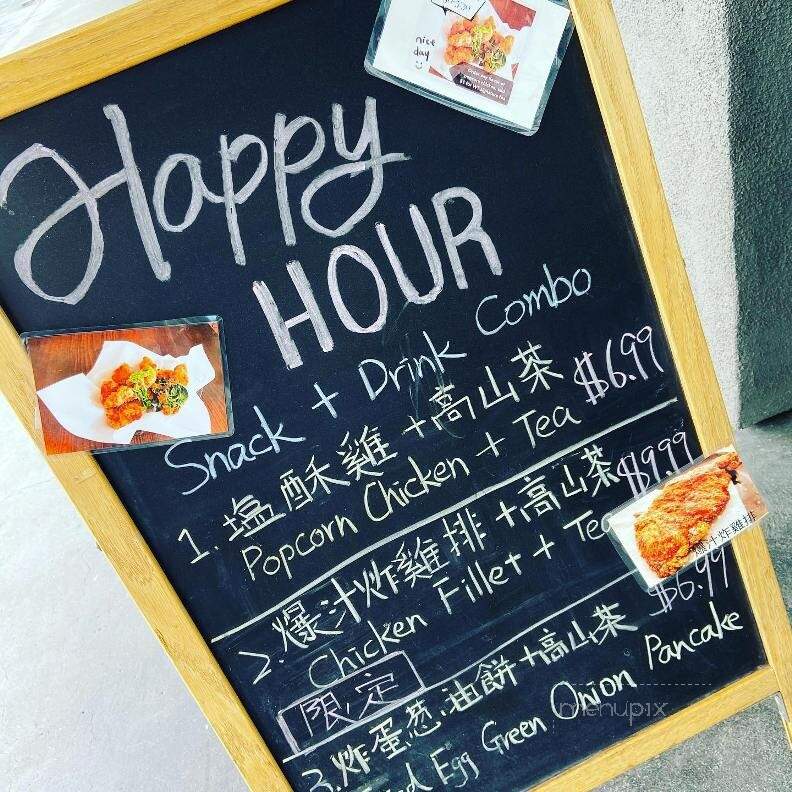 nice
day
Happy
HOUR
Snack + Drink Combo
1. 塩酥雞 + 高山茶 $6.99
Popcorn Chicken + Tea
2. 爆汁炸雞排 + 高山茶 $9.99
Chicken Fillet + Tea
爆汁炸雞排
限定
3. 炸蛋葱油餅 + 高山茶 $6.99
Egg Green Onion Pancake
menupix